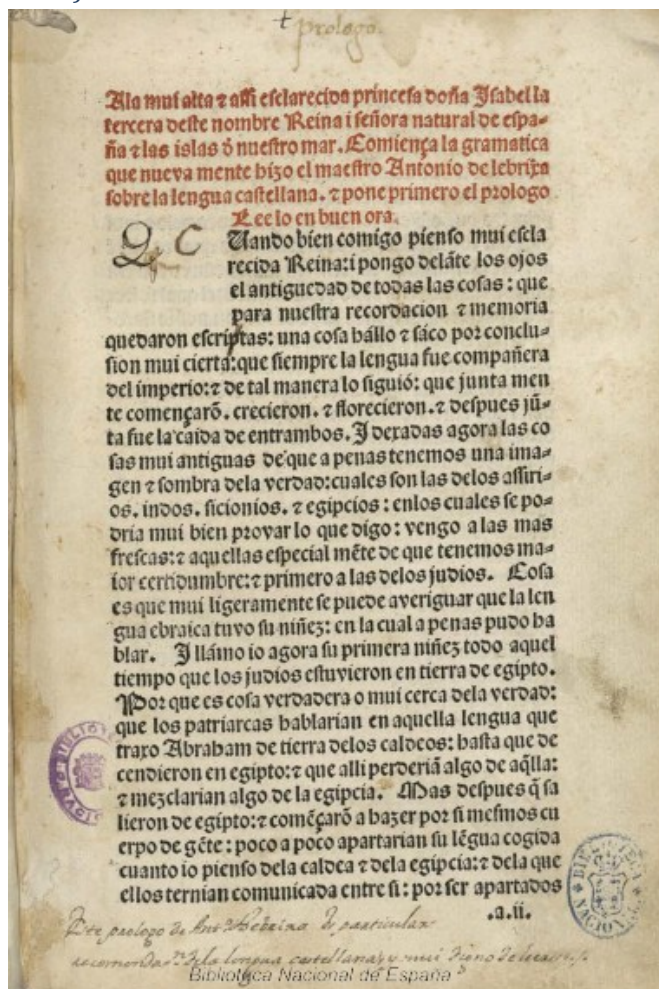 prologo.
Ala mui alta ⁊ assi esclarecida princesa doña Isabel la
tercera deste nombre Reina i señora natural de espa⸗
ña ⁊ las islas õ nuestro mar. Comiença la gramatica
que nueva mente hizo el maestro Antonio de lebrixa
sobre la lengua castellana. ⁊ pone primero el prologo
Lee lo en buen ora.
C Uando bien comigo pienso mui escla
recida Reina: i pongo delãte los ojos
el antiguedad de todas las cosas: que
para nuestra recordacion ⁊ memoria
quedaron escriptas: una cosa hállo ⁊ sáco por conclu⸗
sion mui cierta: que siempre la lengua fue compañera
del imperio: ⁊ de tal manera lo siguió: que junta men
te começarõ. crecieron. ⁊ florecieron. ⁊ despues jũ⸗
ta fue la caida de entrambos. I dexadas agora las co
sas mui antiguas de que a penas tenemos una ima⸗
gen ⁊ sombra dela verdad: cuales son las delos assiri⸗
os. indos. sicionios. ⁊ egipcios: enlos cuales se po⸗
dria mui bien provar lo que digo: vengo a las mas
frescas: ⁊ aquellas especial mẽte de que tenemos ma⸗
ior certidumbre: ⁊ primero a las delos judios. Cosa
es que mui ligeramente se puede averiguar que la len
gua ebraica tuvo su niñez: en la cual a penas pudo ha
blar. I llámo io agora su primera niñez todo aquel
tiempo que los judios estuvieron en tierra de egipto.
Por que es cosa verdadera o mui cerca dela verdad:
que los patriarcas hablarian en aquella lengua que
traxo Abraham de tierra delos caldeos: hasta que de
cendieron en egipto: ⁊ que alli perderiã algo de aq̃lla:
⁊ mezclarian algo de la egipcia. Mas despues q̃ sa
lieron de egipto: ⁊ comẽçarõ a hazer por si mesmos cu
erpo de gẽte: poco a poco apartarian su lẽgua cogida
cuanto io pienso dela caldea ⁊ dela egipcia: ⁊ dela que
ellos ternian comunicada entre si: por ser apartados
.a.ii.
Este prologo de Antº Nebrixa de particular
de la lengua castellana, y mui digno de
Biblioteca Nacional de España
BIBLIOTECA
NACIONAL